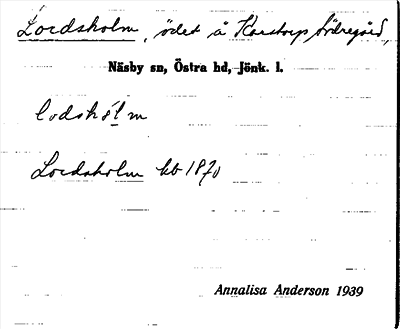 Lordsholm, ödet å Korstorp Södregård,
Näsby sn, Östra hd, Jönk. l.
lodshólm
Lordsholm kb 1870
Annalisa Anderson 1939